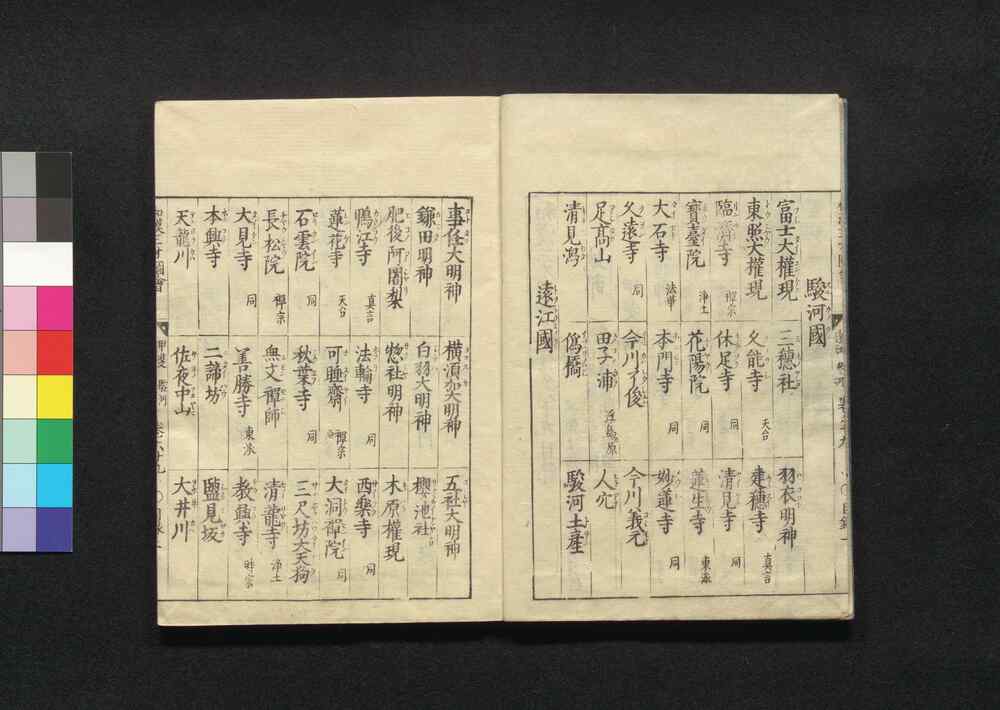 駿河國
富士大權現 三穂社 羽衣明神
東照大權現 久能寺 天台 建穂寺 真言
臨濟寺 禅宗 休足寺 同 清見寺 同
寶臺院 浄土 花陽院 同 蓮生寺 東派
大石寺 法華 本門寺 同 妙蓮寺 同
久遠寺 同 今川了俊 今川義元
足髙山 田子浦 浮島原 人穴
清見潟 爲橋 駿河土産
遠江國
事任大明神 横須加大明神 五社大明神
鎌田明神 白羽大明神 櫻池社
肥後阿闍梨 惣社明神 木原權現
鴨江寺 真言 法輪寺 同 西樂寺 同
蓮花寺 天台 可睡齋 禅宗 大洞院 同
石雲院 同 秋葉寺 同 三尺坊大天狗
長松院 禅宗 無文禅師 清瀧寺 浄土
大見寺 同 善勝寺 東派 教

本興寺 同 二諦坊 鹽見坂
天龍川 佐夜中山 大井川